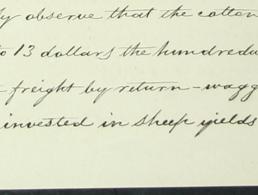 ly observe that the cotton
to 13 dollars the hundredw
freight by return-wagg
invested in sheep yields